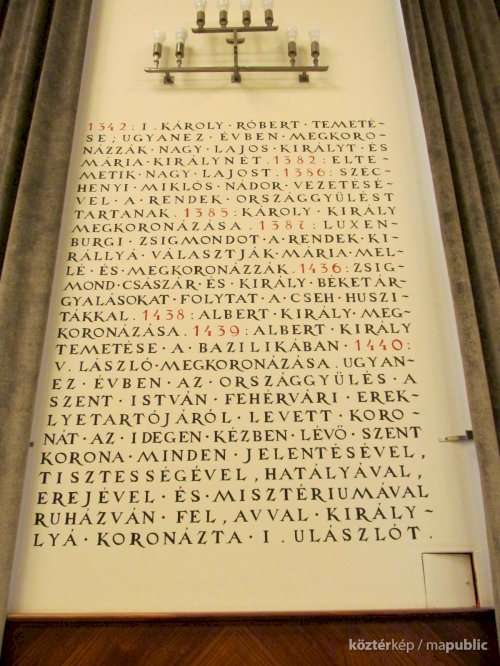 1342: I. KÁROLY · RÓBERT · TEMETÉ~
SE; UGYANEZ · ÉVBEN · MEGKORO~
NÁZZÁK · NAGY · LAJOS · KIRÁLYT · ÉS
MÁRIA · KIRÁLYNÉT. 1382: ELTE~
METIK · NAGY · LAJOST. 1386: SZÉC~
HENYI · MIKLÓS · NÁDOR · VEZETÉSÉ~
VEL · A · RENDEK · ORSZÁGGYŰLÉST
TARTANAK. 1385: KÁROLY · KIRÁLY
MEGKORONÁZÁSA. 1387: LUXEN~
BURGI · ZSIGMONDOT · A · RENDEK · KI~
RÁLLYÁ · VÁLASZTJÁK · MÁRIA · MEL~
LÉ · ÉS · MEGKORONÁZZÁK. 1436: ZSIG~
MOND · CSÁSZÁR · ÉS · KIRÁLY · BÉKETÁR~
GYALÁSOKAT · FOLYTAT · A · CSEH · HUSZI~
TÁKKAL. 1438: ALBERT · KIRÁLY · MEG~
KORONÁZÁSA. 1439: ALBERT · KIRÁLY
TEMETÉSE · A · BAZILIKÁBAN · 1440:
V. LÁSZLÓ · MEGKORONÁZÁSA. UGYAN~
EZ · ÉVBEN · AZ · ORSZÁGGYŰLÉS · A
SZENT · ISTVÁN · FEHÉRVÁRI · EREK~
LYETARTÓJÁRÓL · LEVETT · KORO~
NÁT · AZ · IDEGEN · KÉZBEN · LÉVŐ · SZENT
KORONA · MINDEN · JELENTÉSÉVEL,
TISZTESSÉGÉVEL, HATÁLYÁVAL,
EREJÉVEL · ÉS · MISZTÉRIUMÁVAL
RUHÁZVÁN · FEL, AVVAL · KIRÁLY~
LYÁ · KORONÁZTA · I. ULÁSZLÓT.
köztérkép / mapublic